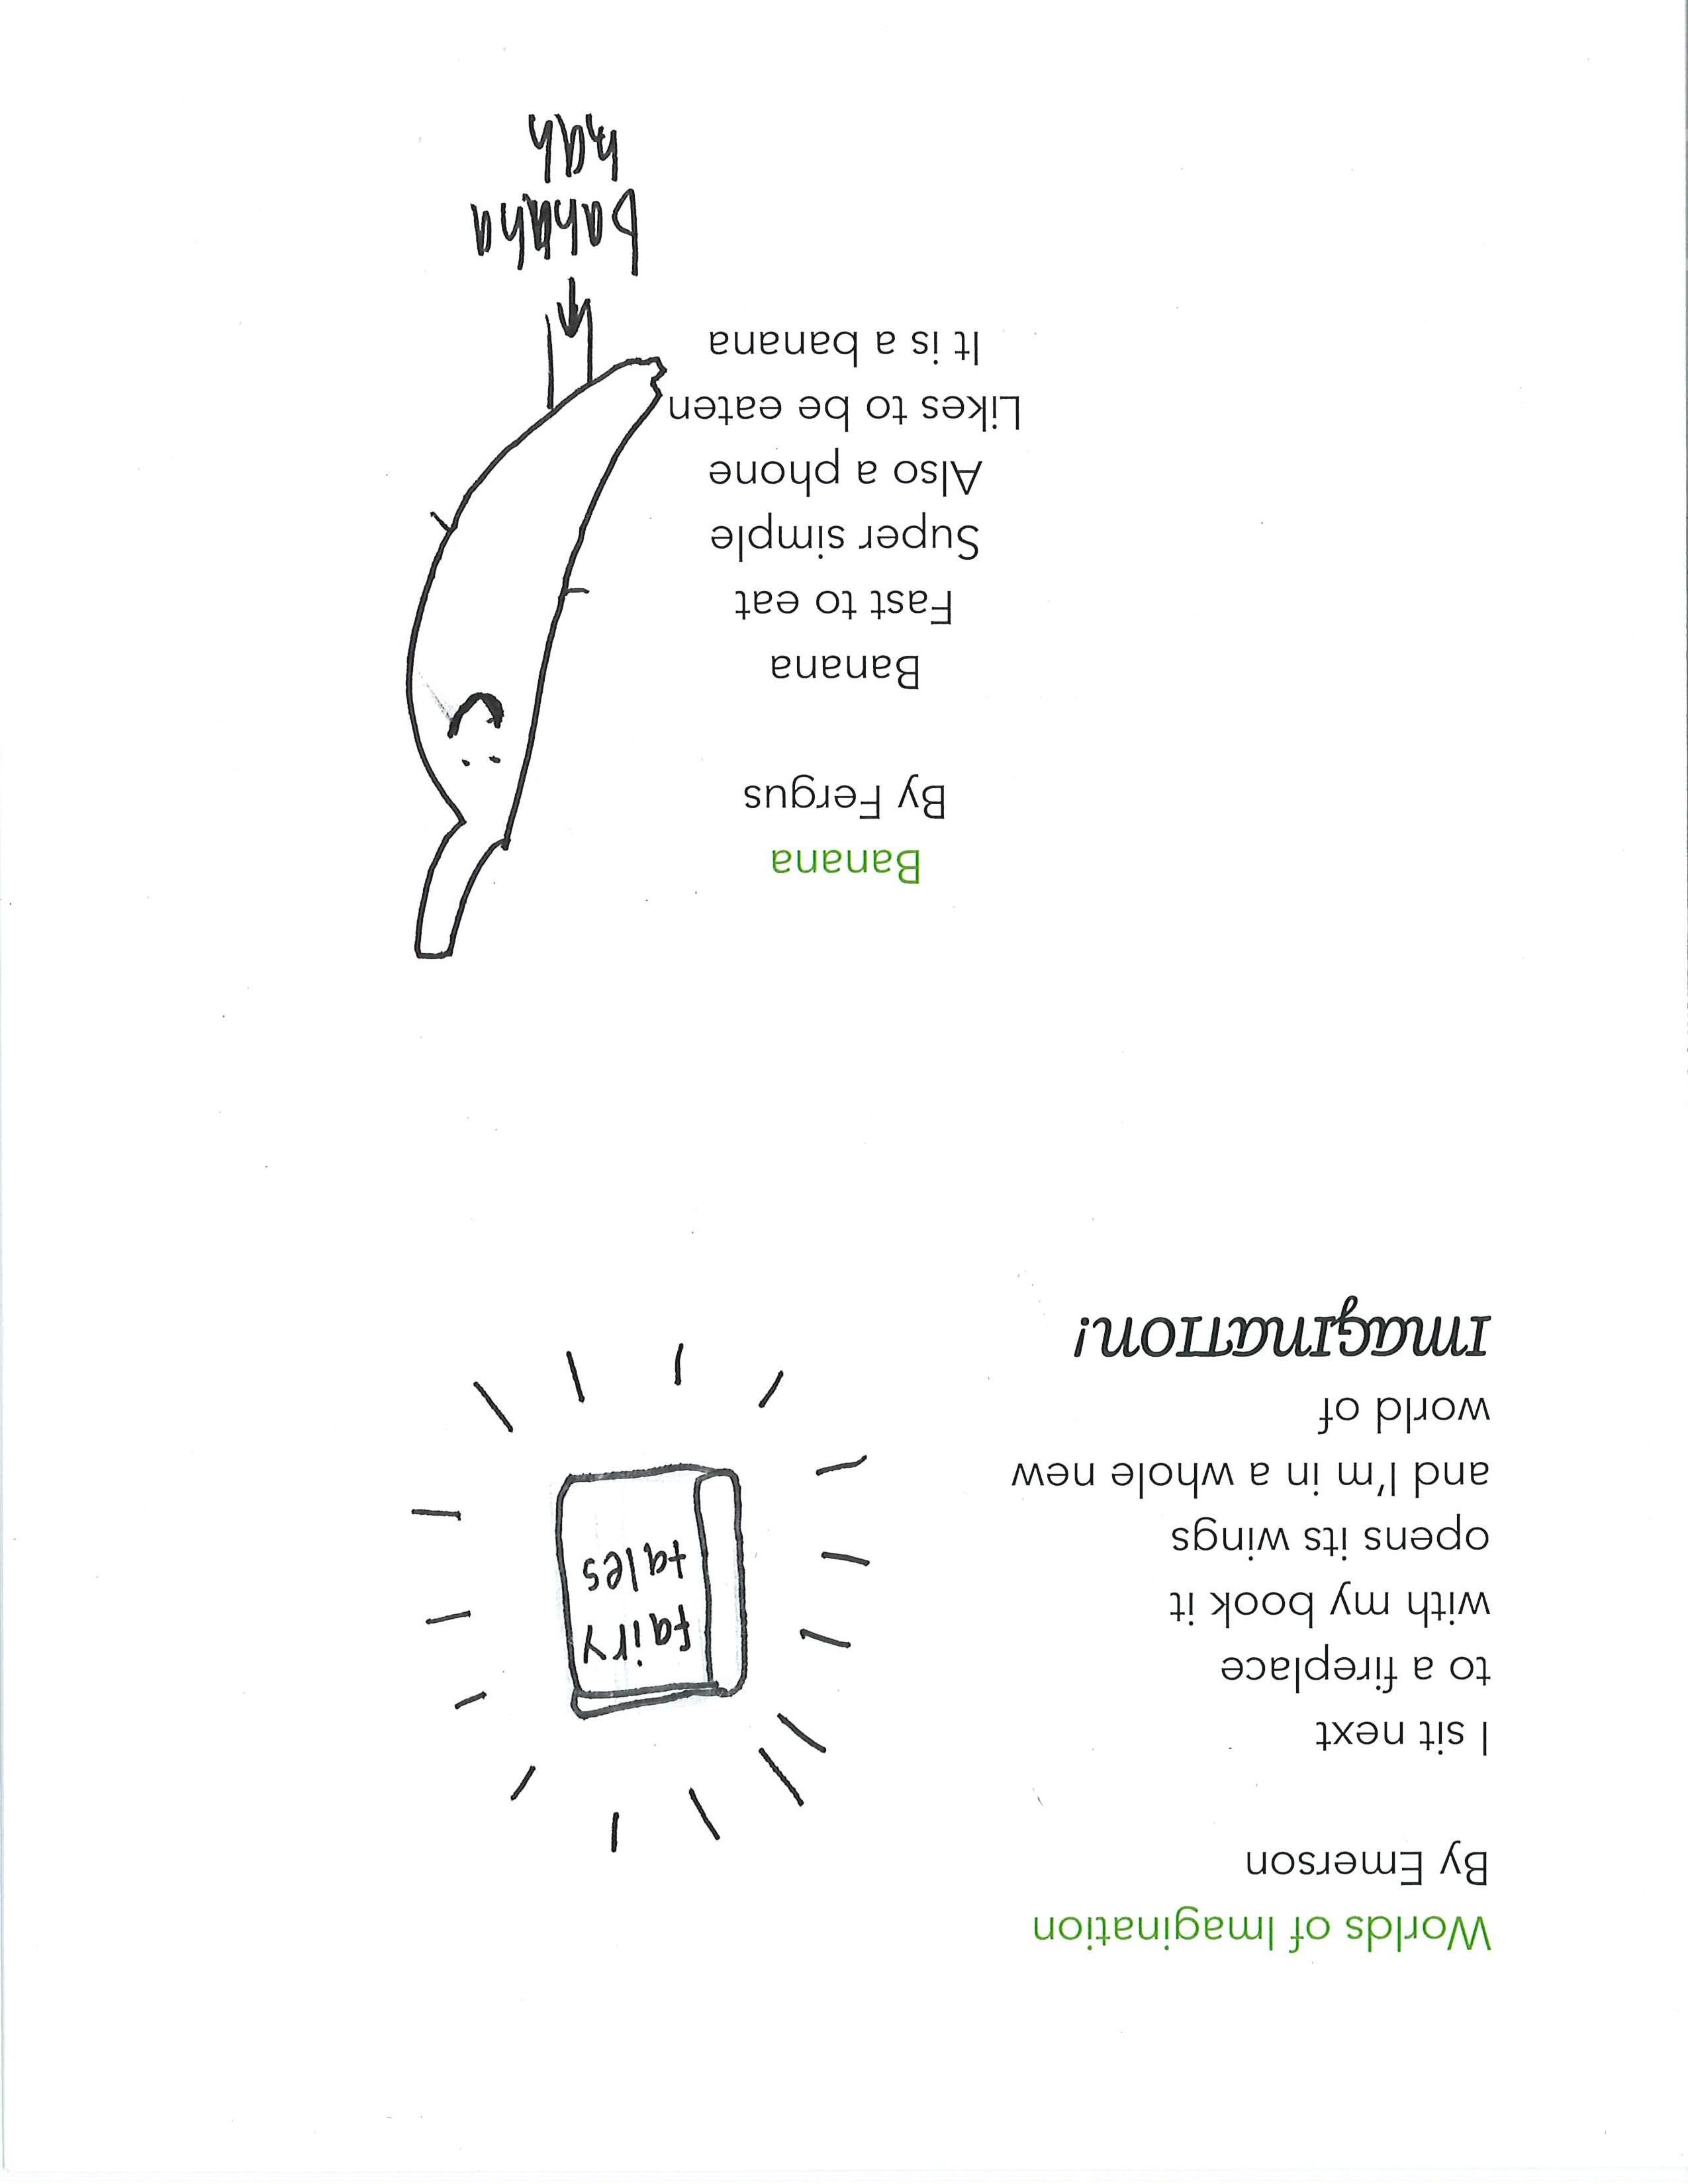 Worlds of Imagination
By Emerson
I sit next
to a fireplace
with my book it
opens its wings
and I'm in a whole new
world of
Imagination!
fairy
tales
Banana
By Fergus
Banana
Fast to eat
Super simple
Also a phone
Likes to be eaten
It is a banana
banana
nah